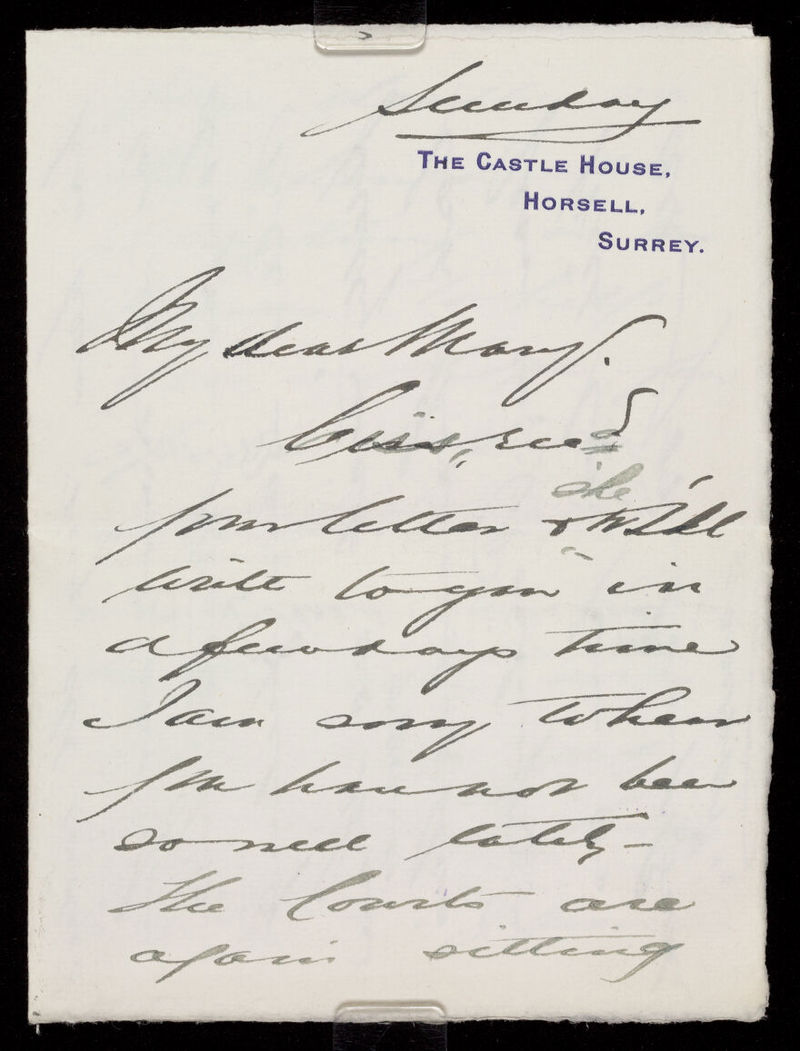 Sunday
THE CASTLE HOUSE,
HORSELL,
SURREY.
My dear Mary.
Ciss, recd
she
your letter & will
write to you in
a few days time
I am sorry to hear
you have not been
so well lately -
The Courts are
again sitting